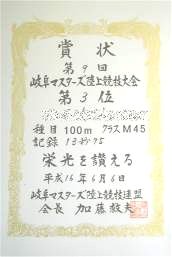 賞状
第9回
岐阜マスターズ陸上競技大会
第3位
種目 100m クラス M45
記録 13秒75
栄光を讃える
平成16年6月6日
岐阜マスターズ陸上競技連盟
会長 加藤敏夫